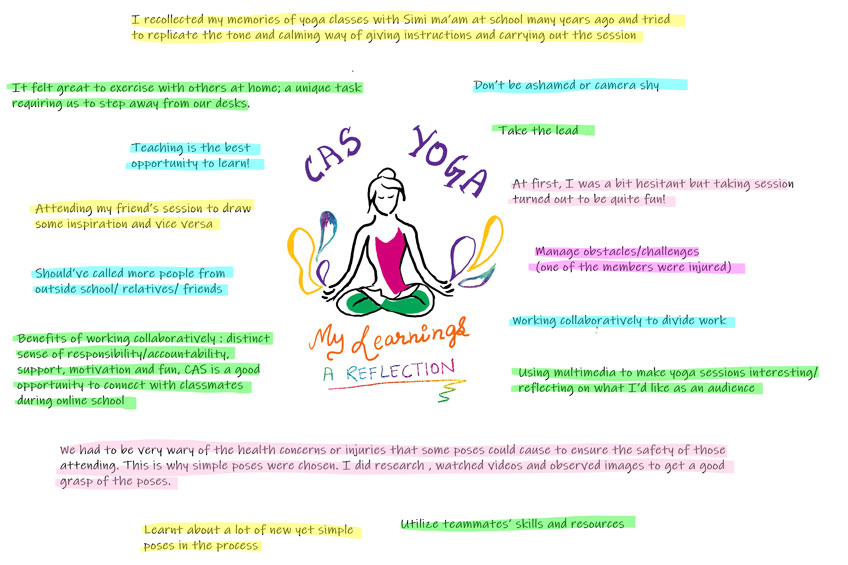 I recollected my memories of yoga classes with Simi ma'am at school many years ago and tried
to replicate the tone and calming way of giving instructions and carrying out the session
It felt great to exercise with others at home; a unique task
requiring us to step away from our desks.
Don't be ashamed or camera shy
Take the lead
Teaching is the best
opportunity to learn!
CAS YOGA
At first, I was a bit hesitant but taking session
turned out to be quite fun!
Attending my friend's session to draw
some inspiration and vice versa
Manage obstacles/challenges
(one of the members were injured)
Should've called more people from
outside school/ relatives/ friends
Working collaboratively to divide work
Benefits of working collaboratively : distinct
sense of responsibility/accountability,
support, motivation and fun, CAS is a good
opportunity to connect with classmates
during online school
My Learnings
A REFLECTION
Using multimedia to make yoga sessions interesting/
reflecting on what I'd like as an audience
We had to be very wary of the health concerns or injuries that some poses could cause to ensure the safety of those
attending. This is why simple poses were chosen. I did research , watched videos and observed images to get a good
grasp of the poses.
Learnt about a lot of new yet simple
poses in the process
Utilize teammates' skills and resources